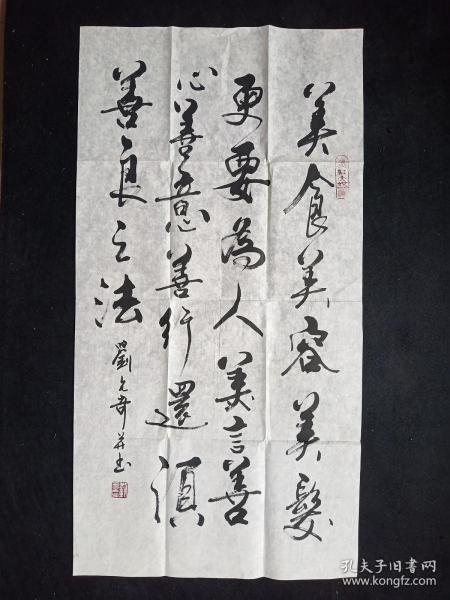 美食美容美髮
更要為人美言善
心善意善行還須
善良之法
劉允奇并书
孔夫子旧书网
www.kongfz.com